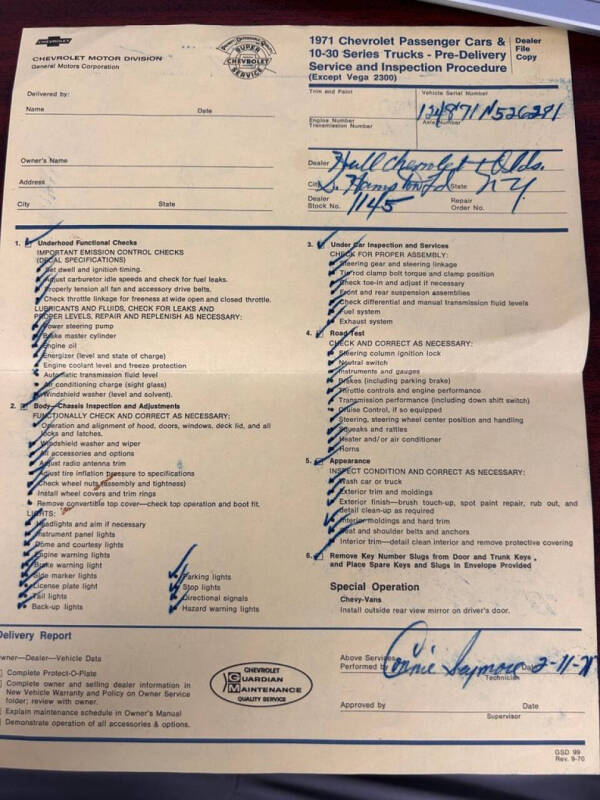 CHEVROLET
CHEVROLET MOTOR DIVISION
General Motors Corporation
SUPER
CHEVROLET
SERVICE
1971 Chevrolet Passenger Cars &
10-30 Series Trucks - Pre-Delivery
Service and Inspection Procedure
(Except Vega 2300)
Dealer
File
Copy
Delivered by:
Name Date
Owner's Name
Address
City State
Trim and Paint
Vehicle Serial Number
124871N526281
Engine Number
Transmission Number
Axle Number
Dealer Hull Chevrolet & Olds.
City S. Hampton State N.Y.
Dealer
Stock No. 1145
Repair
Order No.
1. Underhood Functional Checks
IMPORTANT EMISSION CONTROL CHECKS
(DECAL SPECIFICATIONS)
Set dwell and ignition timing.
Adjust carburetor idle speeds and check for fuel leaks.
Properly tension all fan and accessory drive belts.
Check throttle linkage for freeness at wide open and closed throttle.
LUBRICANTS AND FLUIDS, CHECK FOR LEAKS AND
PROPER LEVELS, REPAIR AND REPLENISH AS NECESSARY:
Power steering pump
Brake master cylinder
Engine oil
Energizer (level and state of charge)
Engine coolant level and freeze protection
Automatic transmission fluid level
Air conditioning charge (sight glass)
Windshield washer (level and solvent).
2. Body—Chassis Inspection and Adjustments
FUNCTIONALLY CHECK AND CORRECT AS NECESSARY:
Operation and alignment of hood, doors, windows, deck lid, and all
locks and latches.
Windshield washer and wiper
All accessories and options
Adjust radio antenna trim
Adjust tire inflation pressure to specifications
Check wheel nuts (assembly and tightness)
Install wheel covers and trim rings
• Remove convertible top cover—check top operation and boot fit.
LIGHTS:
Headlights and aim if necessary
Instrument panel lights
Dome and courtesy lights
Engine warning lights
Brake warning light
Side marker lights
License plate light
Tail lights
Back-up lights
Parking lights
Stop lights
Directional signals
Hazard warning lights
3. Under Car Inspection and Services
CHECK FOR PROPER ASSEMBLY:
Steering gear and steering linkage
Tie rod clamp bolt torque and clamp position
Check toe-in and adjust if necessary
Front and rear suspension assemblies
Check differential and manual transmission fluid levels
Fuel system
Exhaust system
4. Road Test
CHECK AND CORRECT AS NECESSARY:
Steering column ignition lock
Neutral switch
Instruments and gauges
Brakes (including parking brake)
Throttle controls and engine performance
Transmission performance (including down shift switch)
Cruise Control, if so equipped
Steering, steering wheel center position and handling
Squeaks and rattles
Heater and/or air conditioner
Horns
5. Appearance
INSPECT CONDITION AND CORRECT AS NECESSARY:
Wash car or truck
Exterior trim and moldings
Exterior finish—brush touch-up, spot paint repair, rub out, and
detail clean-up as required
Interior moldings and hard trim
Seat and shoulder belts and anchors
Interior trim—detail clean interior and remove protective covering
6. Remove Key Number Slugs from Door and Trunk Keys
and Place Spare Keys and Slugs in Envelope Provided
Special Operation
Chevy-Vans
Install outside rear view mirror on driver's door.
Delivery Report
Owner—Dealer—Vehicle Data
Complete Protect-O-Plate
Complete owner and selling dealer information in
New Vehicle Warranty and Policy on Owner Service
folder; review with owner.
Explain maintenance schedule in Owner's Manual
Demonstrate operation of all accessories & options.
CHEVROLET
GUARDIAN
MAINTENANCE
QUALITY SERVICE
Above Services
Performed by Connie Seymore Date 2-11-71
Technician
Approved by Date
Supervisor
GSD 99
Rev. 9-70